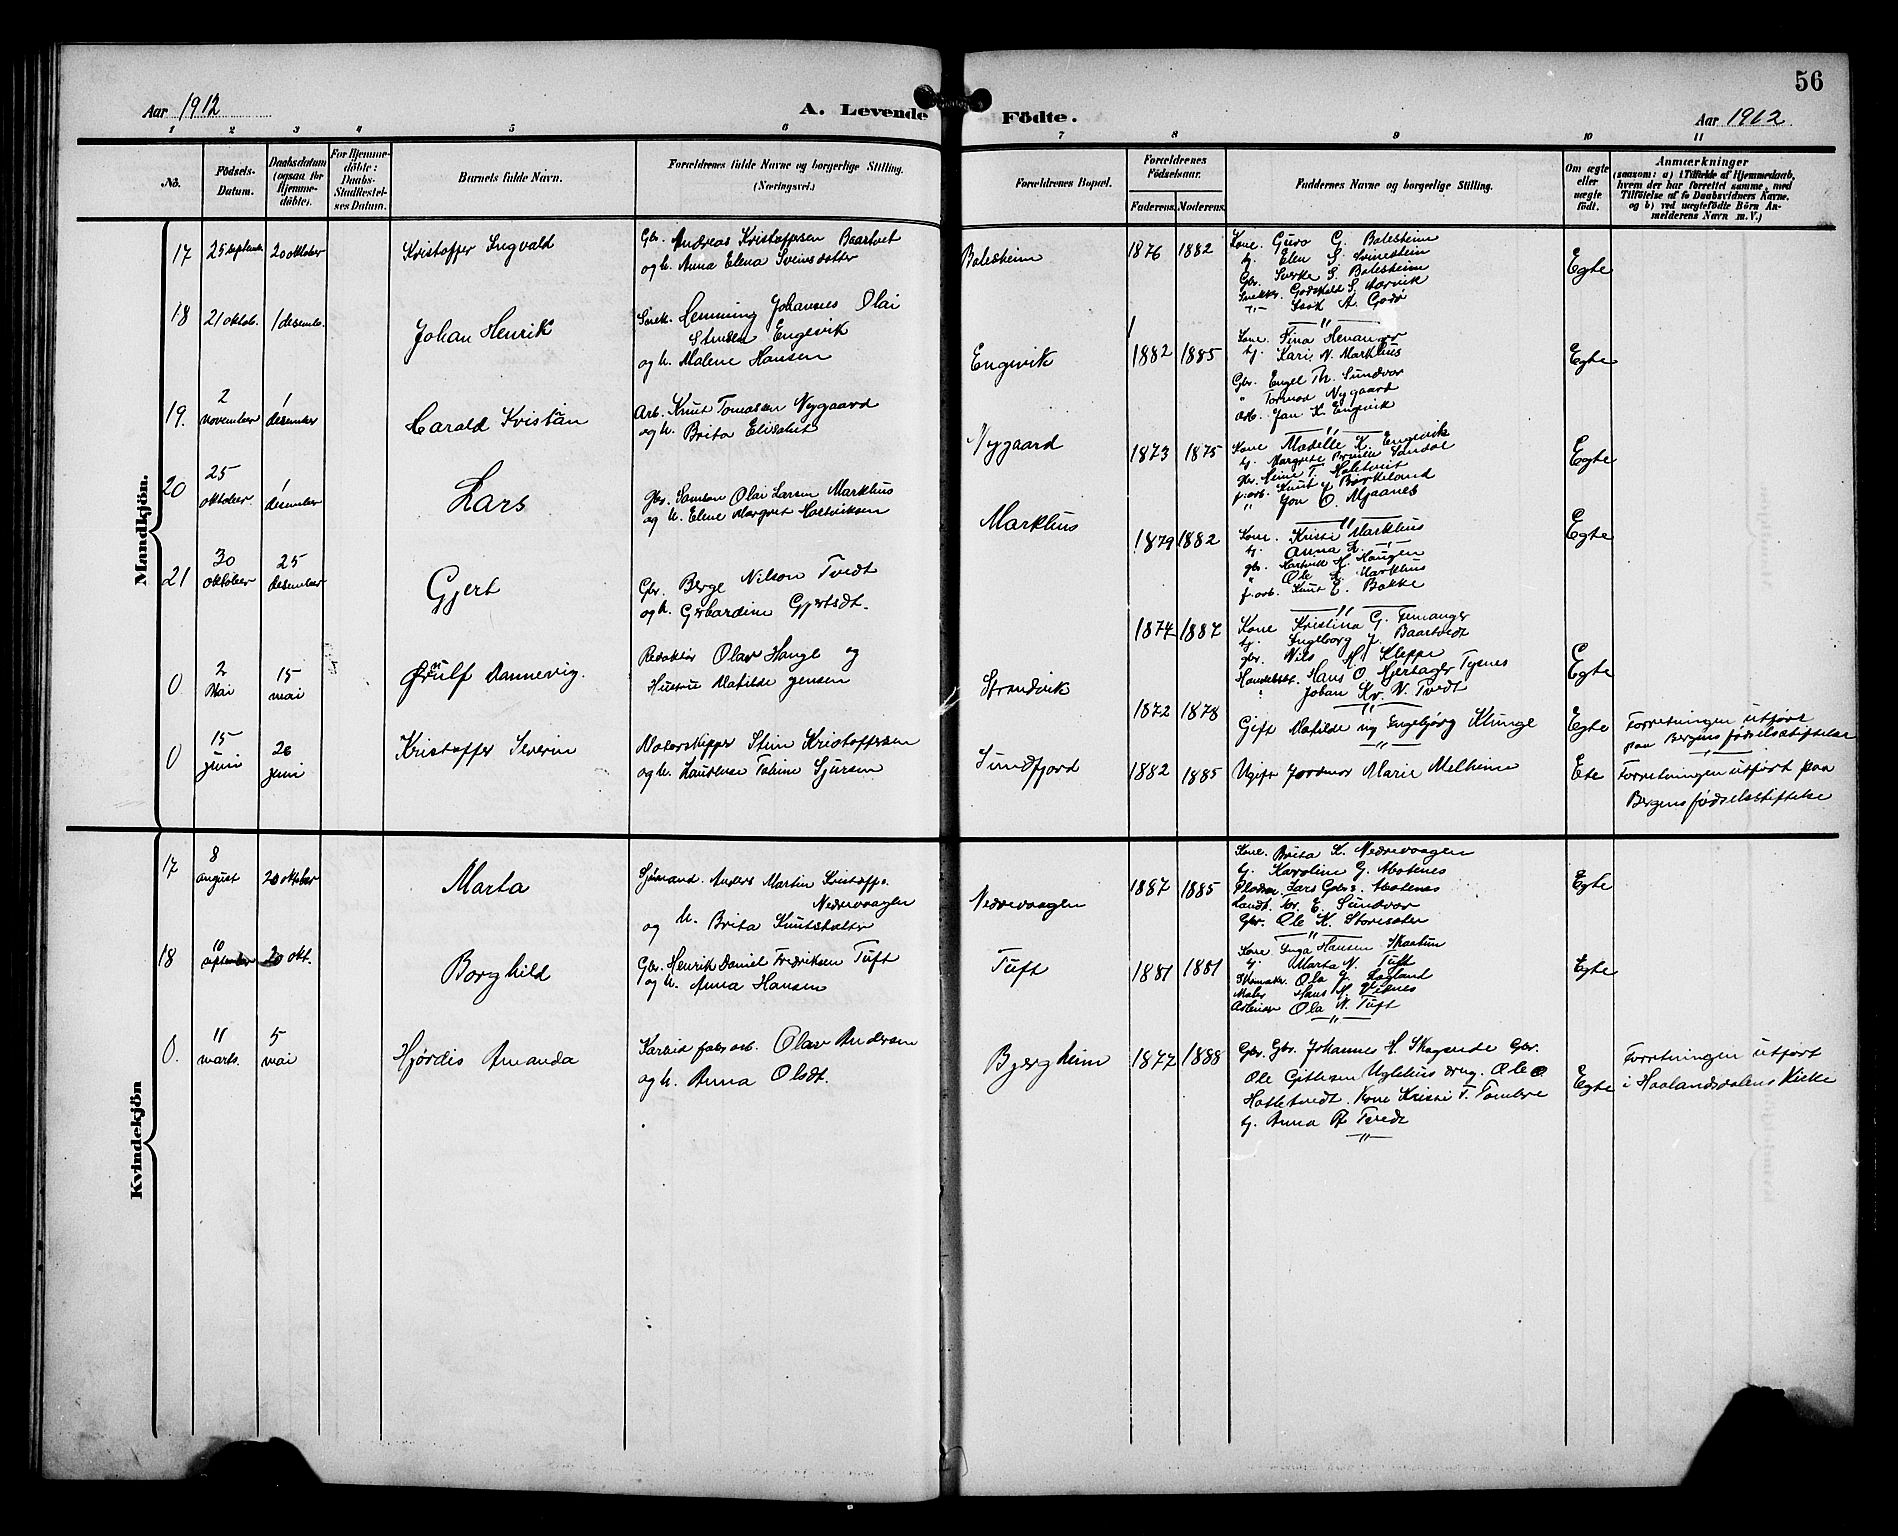 56
Aar 1912
A. Levende Födte.
Aar 1912
1 2 3 4 5 6 7 8 9 10 11
No.
Födsels-Datum.
Daabsdatum (ogsaa for Hjemme-döbte).
For Hjemme-döbte: Daabs-Stadfæstel-ses Datum.
Barnets fulde Navn.
Forældrenes fulde Navne og borgerlige Stilling. (Næringsvei.)
Forældrenes Bopæl.
Forældrenes Födselsaar.
Faderens. Moderens.
Faddernes Navne og borgerlige Stilling.
Om ægte eller uægte født.
Anmærkninger
(saasom: a) i Tilfælde af Hjemmedaab, hvem der har forrettet samme, med Tilföielse af to Daabsvidners Navne. og b) ved uægtefödte Börn Anmelderens Navn m. V.)
Mandkjön.
17 25 septemb 20 oktober Kristoffer Ingvald
Gbr. Andreas Kristoffersen Baartvet
og h. Anna Elena Sveinsdatter
Balesheim 1876 1882
Kone Guro G. Balesheim
tj. Elen S. Svinesheim
Gbr. Sverke S. Balesheim
Snekk. Godskalk S. Aarvik
Isak A. Godø
Egte
18 21 oktob. 1 desemb. Johan Henrik
Snek. Henning Johannes Olai
Stusen Engevik
og h. Malene Hansen
Engevik 1882 1885
Kone. Tina Henanger
tj. Karis N. Markhus
Gbr. Engel Th. Sundvor
" Tormod Nygaard
arb. Jan K. Engevik
Egte
19. 2 november 1 desember Harald Kristian
Arb. Knut Tomassen Nygaard
og h. Brita Elisabet
Nygaard 1873 1875
Kone Madelle K. Engevik
tj. Margrete Sandal
f. arb. Knut J. Birkeland
" Jon O. Mjaanes
Egte
20 25 oktober 1 desember Lars
Gbr. Samson Olai Larsen Markhus
og h. Elene Margret Hartviksen
Markhus 1879 1882
Kone. Kristi Markhus
tj. Anna L. —"—
gbr. Hartvik H. Haugen
" Ole L. Markhus
f. arb. Knut E. Bakke
Egte
21 30 oktober 25 desember Gjert
Gbr. Berge Nilson Tvedt
og h. Gerhardine Gjertsdt.
1874 1887
Kone Kristina G. Femanger
tj. Ingeborg J. Baartvedt
gbr. Nils M. Kleppe
Handelsbt. Hans O. Hjertager Tysnes
" Johan Kr. N. Tvedt
Egte
0 2 Mai 15 mai Ørnulf Dannevig.
Redaktør Olav Hauge og
Hustru Matilde Jensen
Strandvik 1872 1878
Gift Matilde og Engebjørg Klunge
Egte
Forretningen utført
paa Bergens fødselsstiftelse
0 15 juni 26 juni Kristoffer Severin
Motorskipper Stim Kristoffersen
og h. Tobine Sjursen
Sundfjord 1882 1885
Ugift Jordmor Marie Melheim
Ete
Forretningen utført paa
Bergens fødselsstiftelse
Kvindekjön
17 8 august 20 oktober Marta
Sjömand. Anders Martin Kristoffs.
Nedrevaagen
og h. Brita Knutsdatter
Nedrevaagen 1887 1885
Kone. Brita K. Nedrevaagen
tj. Karoline G.
Lars Gbr.
Landh. br. E. Sundvor
Gbr. Ole K. Storesæter
Egte
18 10 september 20 okt. Borghild
Gbr. Henrik Daniel Fredriksen Tuft
og h. Anna Hansen
Tuft 1881 1881
Kone Inga Hansen Skaatun
tj. Marta N. Tuft
Skomaker Ola J. Lagland
Maler Hans M. Viknes
Arbeider Ola N. Tuft
Egte
0. 11 marts. 5 mai Hjørdis Amanda
Karbid fabr. arb. Olav Andersen
og h. Anna Olsdt.
Bjergheim 1877 1888
Gbr. Gbr. Johanne H. Skogseide Gbr.
Ole Gitlesen Uglehus drug. Ole O
Holletvedt. Kone Kristi T. Tombre
tj. Anna B. Tvedt
Egte
Forretningen utført
i Haalandsdalens Kirke